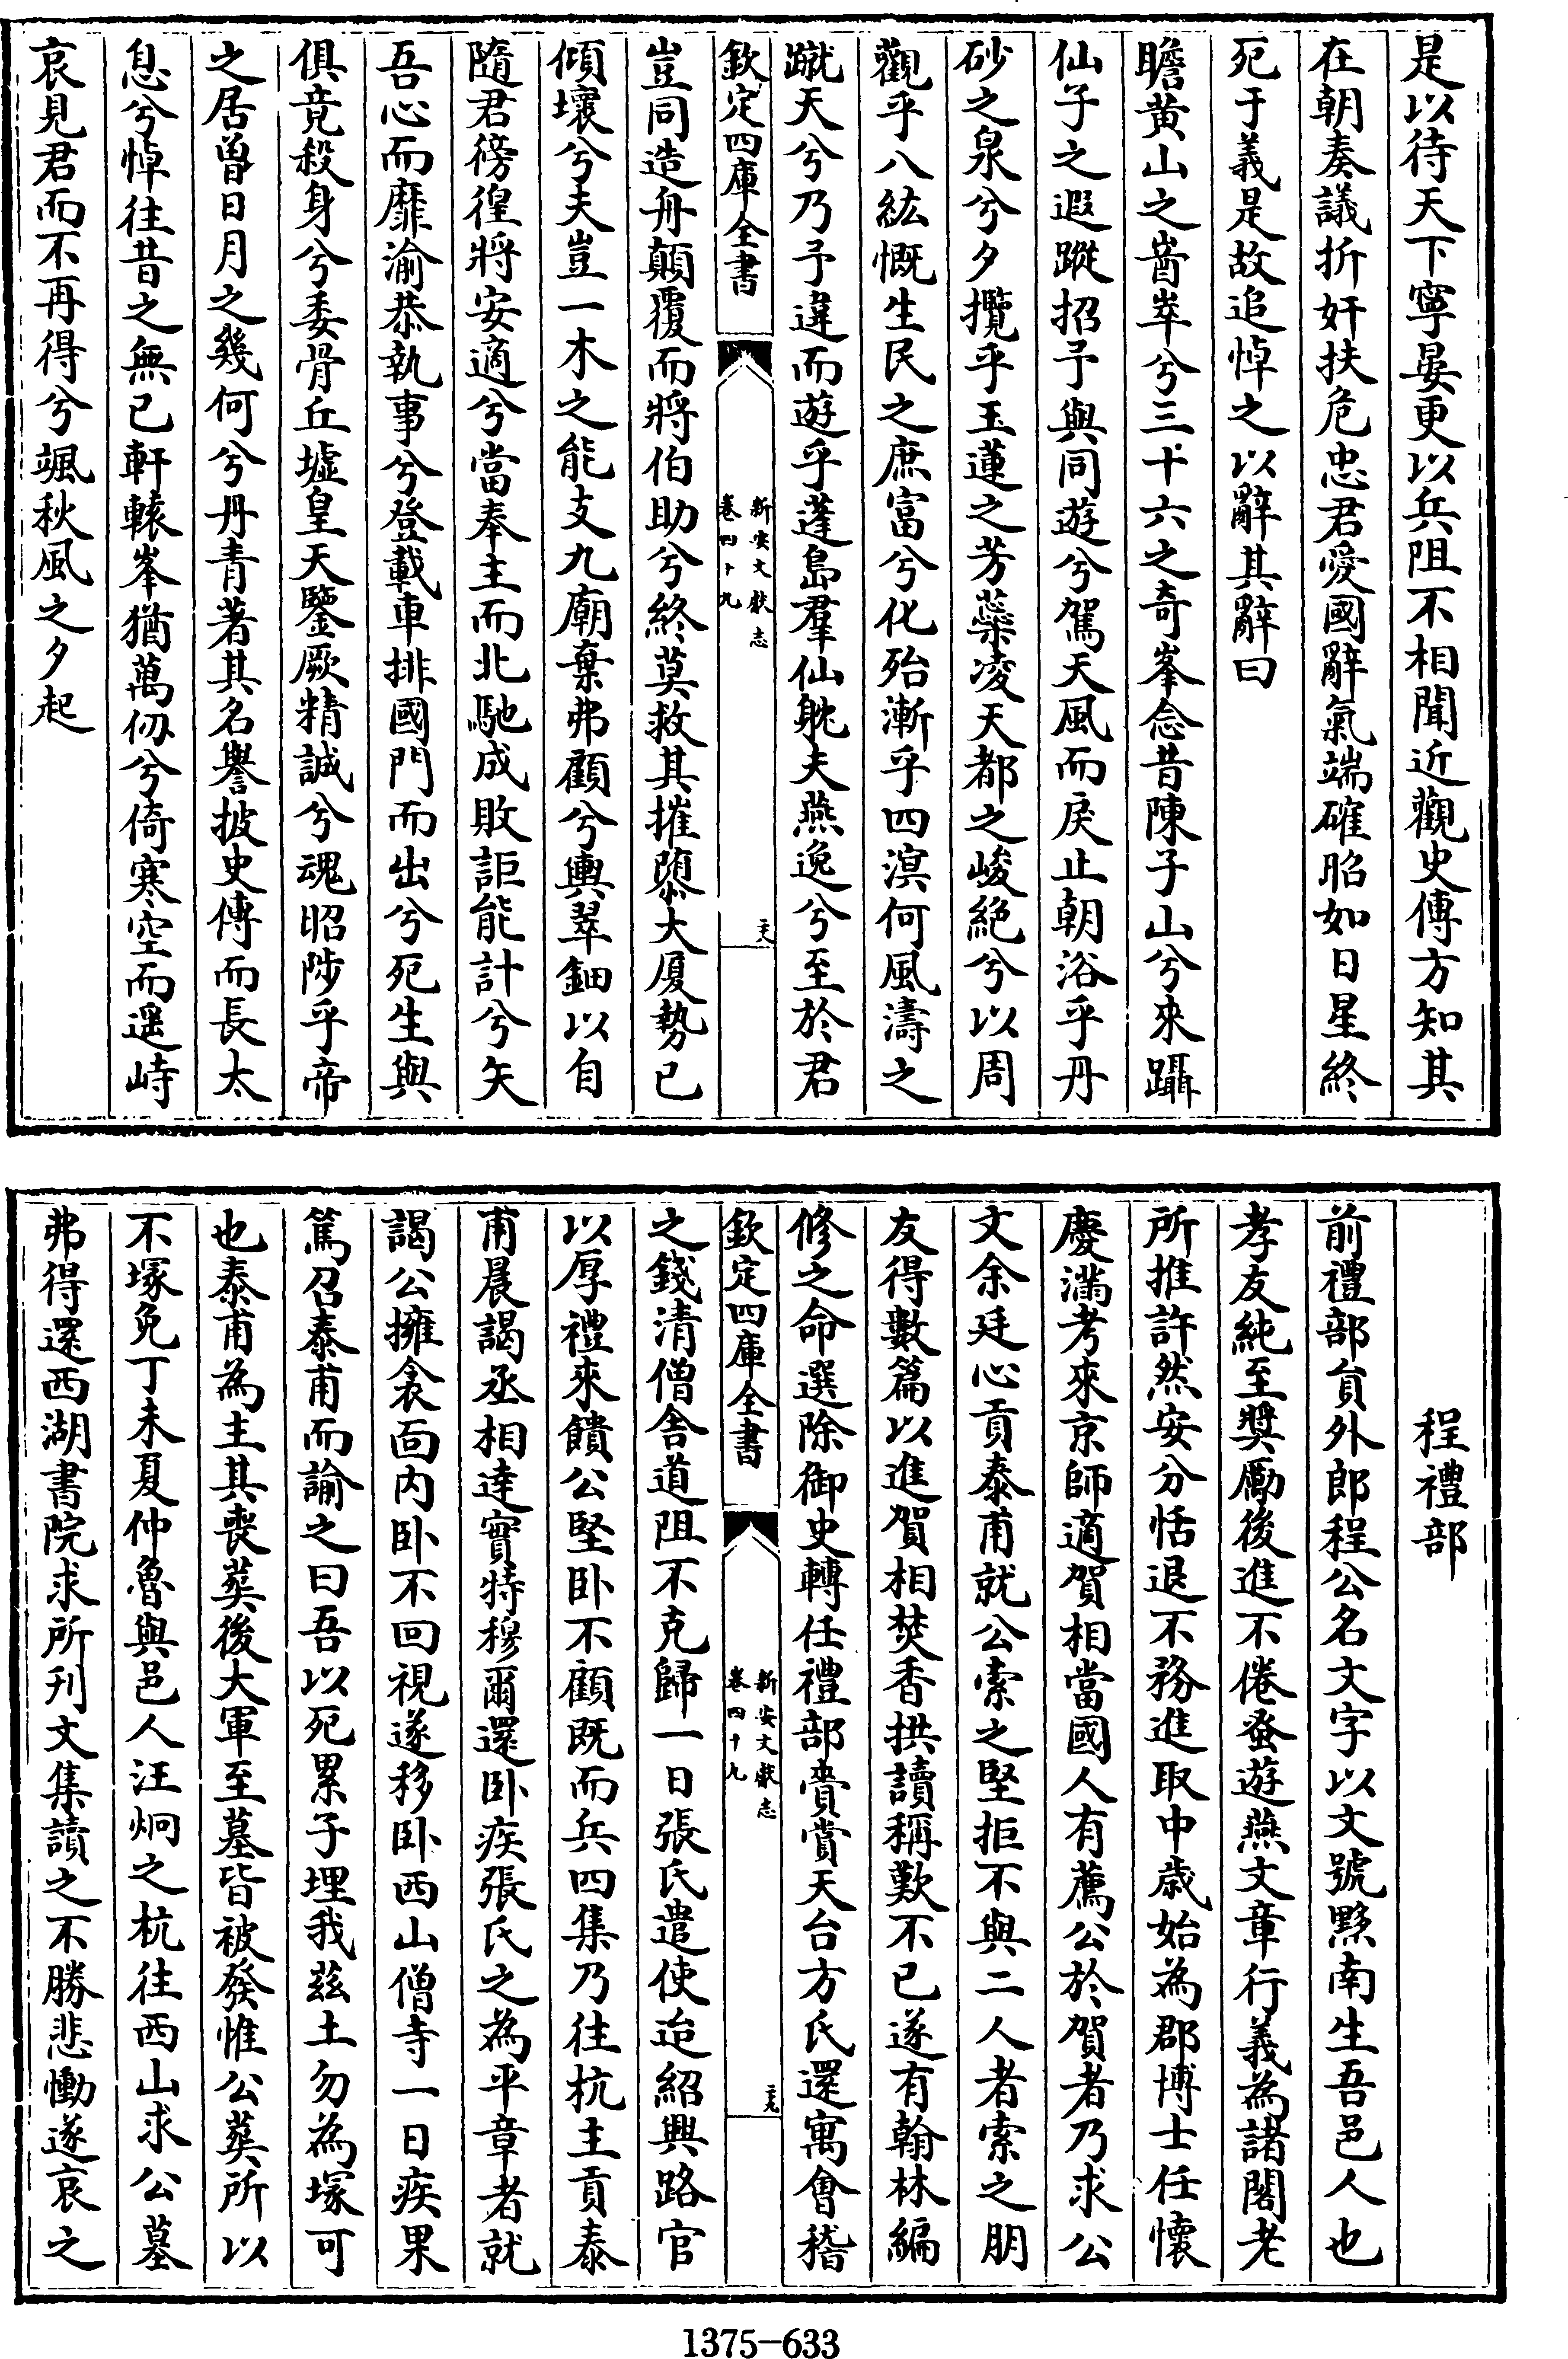 是以待天下寧晏更以兵阻不相聞近觀史傳方知其
在朝奏議折奸扶危忠君愛國辭氣端確昭如日星終
死于義是故追悼之以辭其辭曰
瞻黄山之崷崒兮三十六之奇峯念昔陳子山兮來躡
仙子之遐蹤招予與同遊兮駕天風而戾止朝浴乎丹
砂之泉兮夕攬乎玉蓮之芳蘂凌天都之峻絶兮以周
觀乎八紘慨生民之庶富兮化殆漸乎四溟何風濤之
蹴天兮乃予違而遊乎蓬島羣仙躭夫燕逸兮至於君
欽定四庫全書
新安文獻志
卷四十九
二十八
豈同造舟顛覆而將伯助兮終莫救其摧隳大厦勢已
傾壞兮夫豈一木之能支九廟棄弗顧兮輿翠鈿以自
隨君徬徨將安適兮當奉主而北馳成敗詎能計兮矢
吾心而靡渝恭執事兮登載車排國門而出兮死生與
俱竟殺身兮委骨丘墟皇天鑒厥精誠兮魂昭陟乎帝
之居曾日月之幾何兮丹青著其名譽披史傳而長太
息兮悼往昔之無已軒轅峯猶萬仭兮倚寒空而遥峙
哀見君而不再得兮颯秋風之夕起
程禮部
前禮部員外郎程公名文字以文號黟南生吾邑人也
孝友純至奬勵後進不倦蚤遊燕文章行義為諸閣老
所推許然安分恬退不務進取中歳始為郡博士任懷
慶滿考來京師適賀相當國人有薦公於賀者乃求公
文余廷心貢泰甫就公索之堅拒不與二人者索之朋
友得數篇以進賀相焚香拱讀稱歎不已遂有翰林編
修之命選除御史轉任禮部賫賞天台方氏還寓會稽
欽定四庫全書
新安文獻志
卷四十九
二十九
之錢清僧舎道阻不克歸一日張氏遣使迨紹興路官
以厚禮來饋公堅卧不顧既而兵四集乃往杭主貢泰
甫晨謁丞相達實特穆爾還卧疾張氏之為平章者就
謁公擁衾面内卧不回視遂移卧西山僧寺一日疾果
篤召泰甫而諭之曰吾以死累子埋我兹土勿為塚可
也泰甫為主其喪葬後大軍至墓皆被發惟公葬所以
不塚免丁未夏仲魯與邑人汪炯之杭往西山求公墓
弗得還西湖書院求所刊文集讀之不勝悲慟遂哀之
1375-633